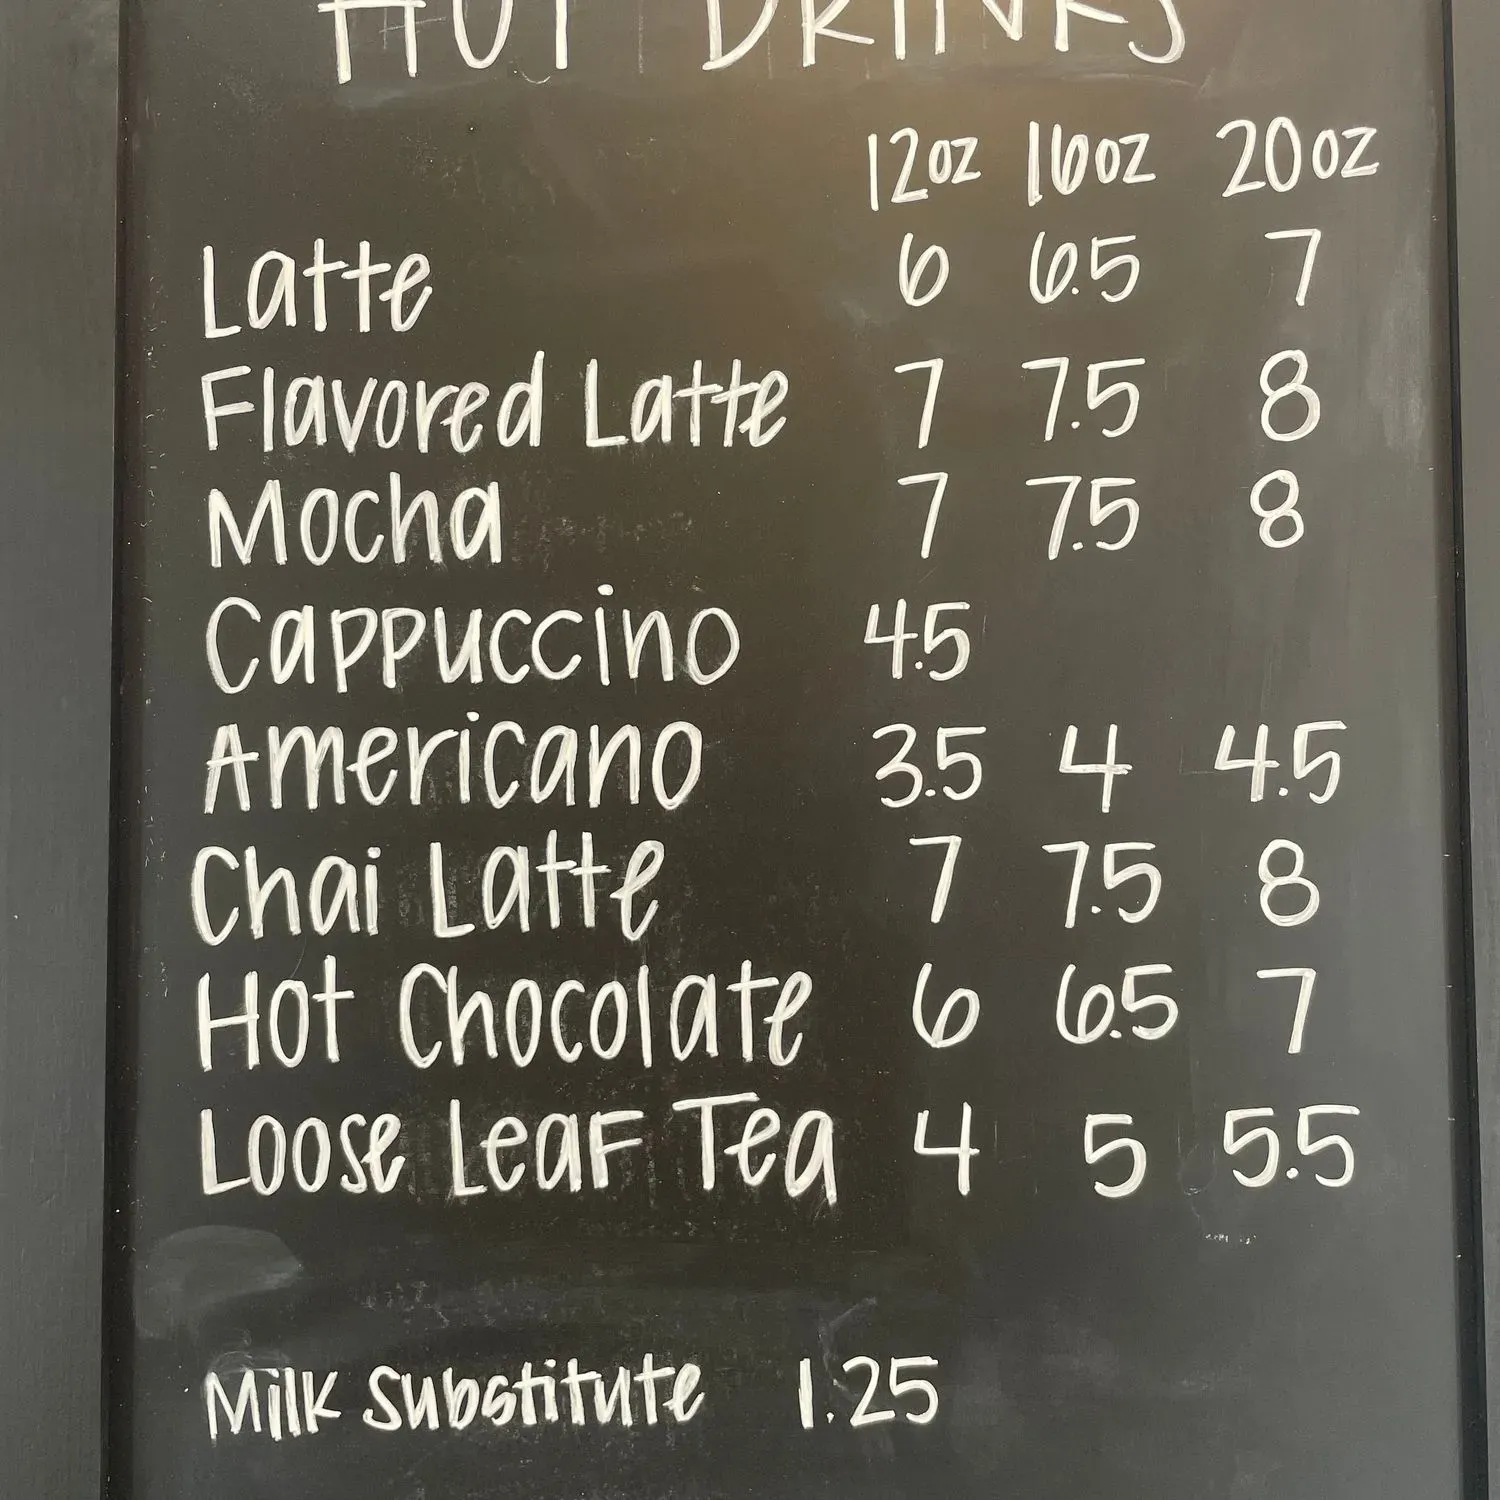 HOT DRINKS
12oz 16oz 20oz
Latte 6 6.5 7
Flavored Latte 7 7.5 8
Mocha 7 7.5 8
Cappuccino 4.5
Americano 3.5 4 4.5
Chai Latte 7 7.5 8
Hot Chocolate 6 6.5 7
Loose Leaf Tea 4 5 5.5
Milk Substitute 1.25